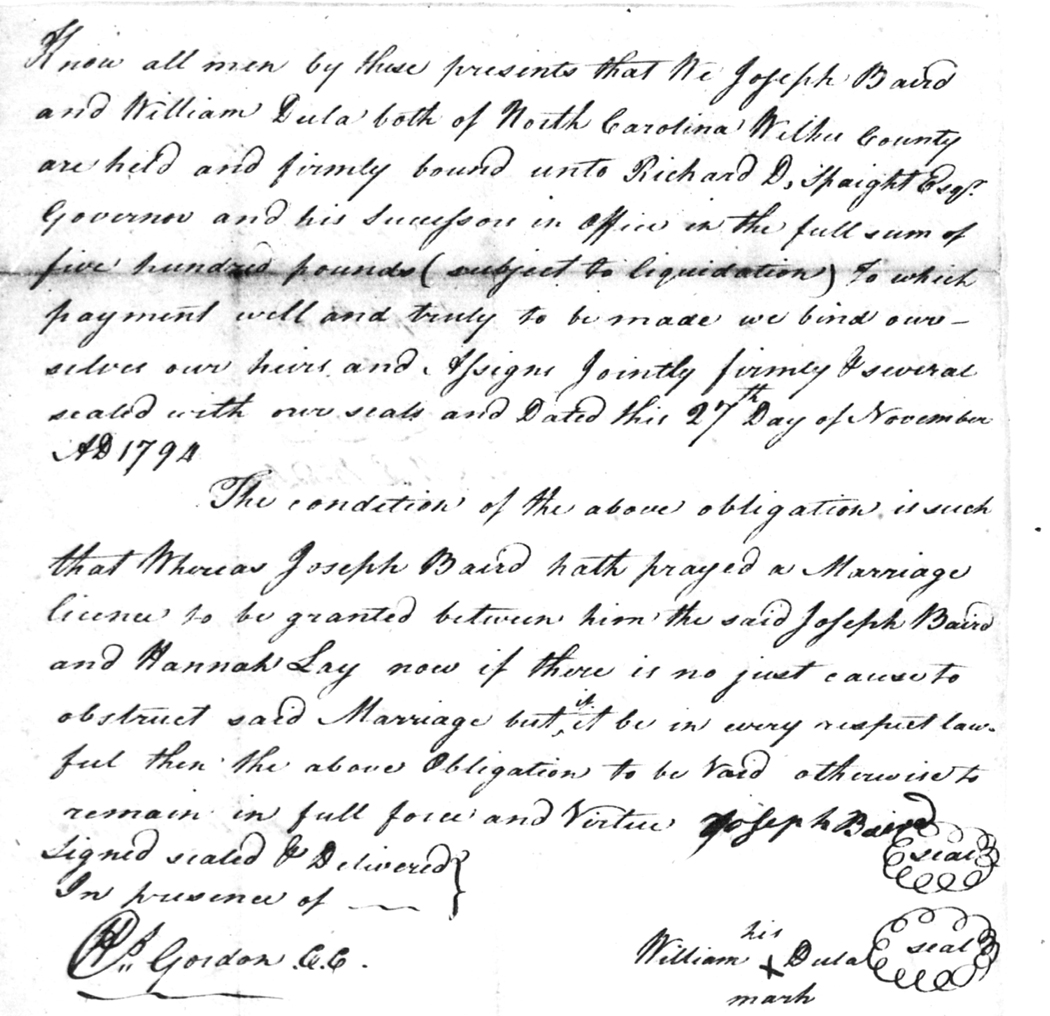 Know all men by these presents that We Joseph Baird
and William Dula both of North Carolina Wilkes County
are held and firmly bound unto Richard D. Spaight Esqr.
Governor and his Successors in Office in the full sum of
five hundred pounds (subject to liquidation) to which
payment well and truly to be made we bind our-
selves our heirs and Assigns Jointly firmly & several
sealed with our seals and Dated this 27th Day of November
AD 1794
The condition of the above obligation is such
that Whereas Joseph Baird hath prayed a Marriage
licence to be granted between him the said Joseph Baird
and Hannah Lay now if there is no just cause to
obstruct said Marriage but if it be in every respect law-
ful then the above Obligation to be Void otherwise to
remain in full force and Virtue Joseph Baird seal
Signed sealed & Delivered
In presence of
Gordon C.C.
William his X mark Dula seal